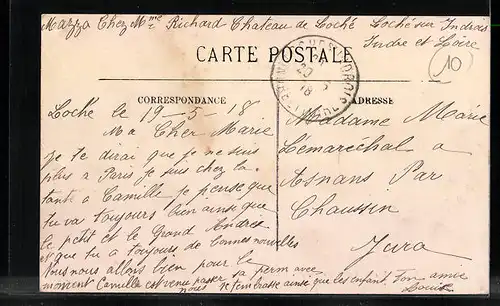 Mazza Chez Mme Richard Chateau de Loché Loché sur Indrois
Indre et Loire
CARTE POSTALE
10
20
18
CORRESPONDANCE
ADRESSE
Loché le 19-5-18
Ma Cher Marie
Je te dirai que je ne suis
plus a Paris je suis chez la
tante à Camille je pense que
tu vas toujours bien ainsi que
le petit et le Grand André
et que tu à toujours de bonnes nouvelles
Nous nous allons bien pour le
moment Camille est venue passer sa perm avec
nous je t'embrasse ainsi que les enfant. Ton amie
Louise
Madame Marie
Lémaréchal a
Asnans Par
Chaussin
Jura